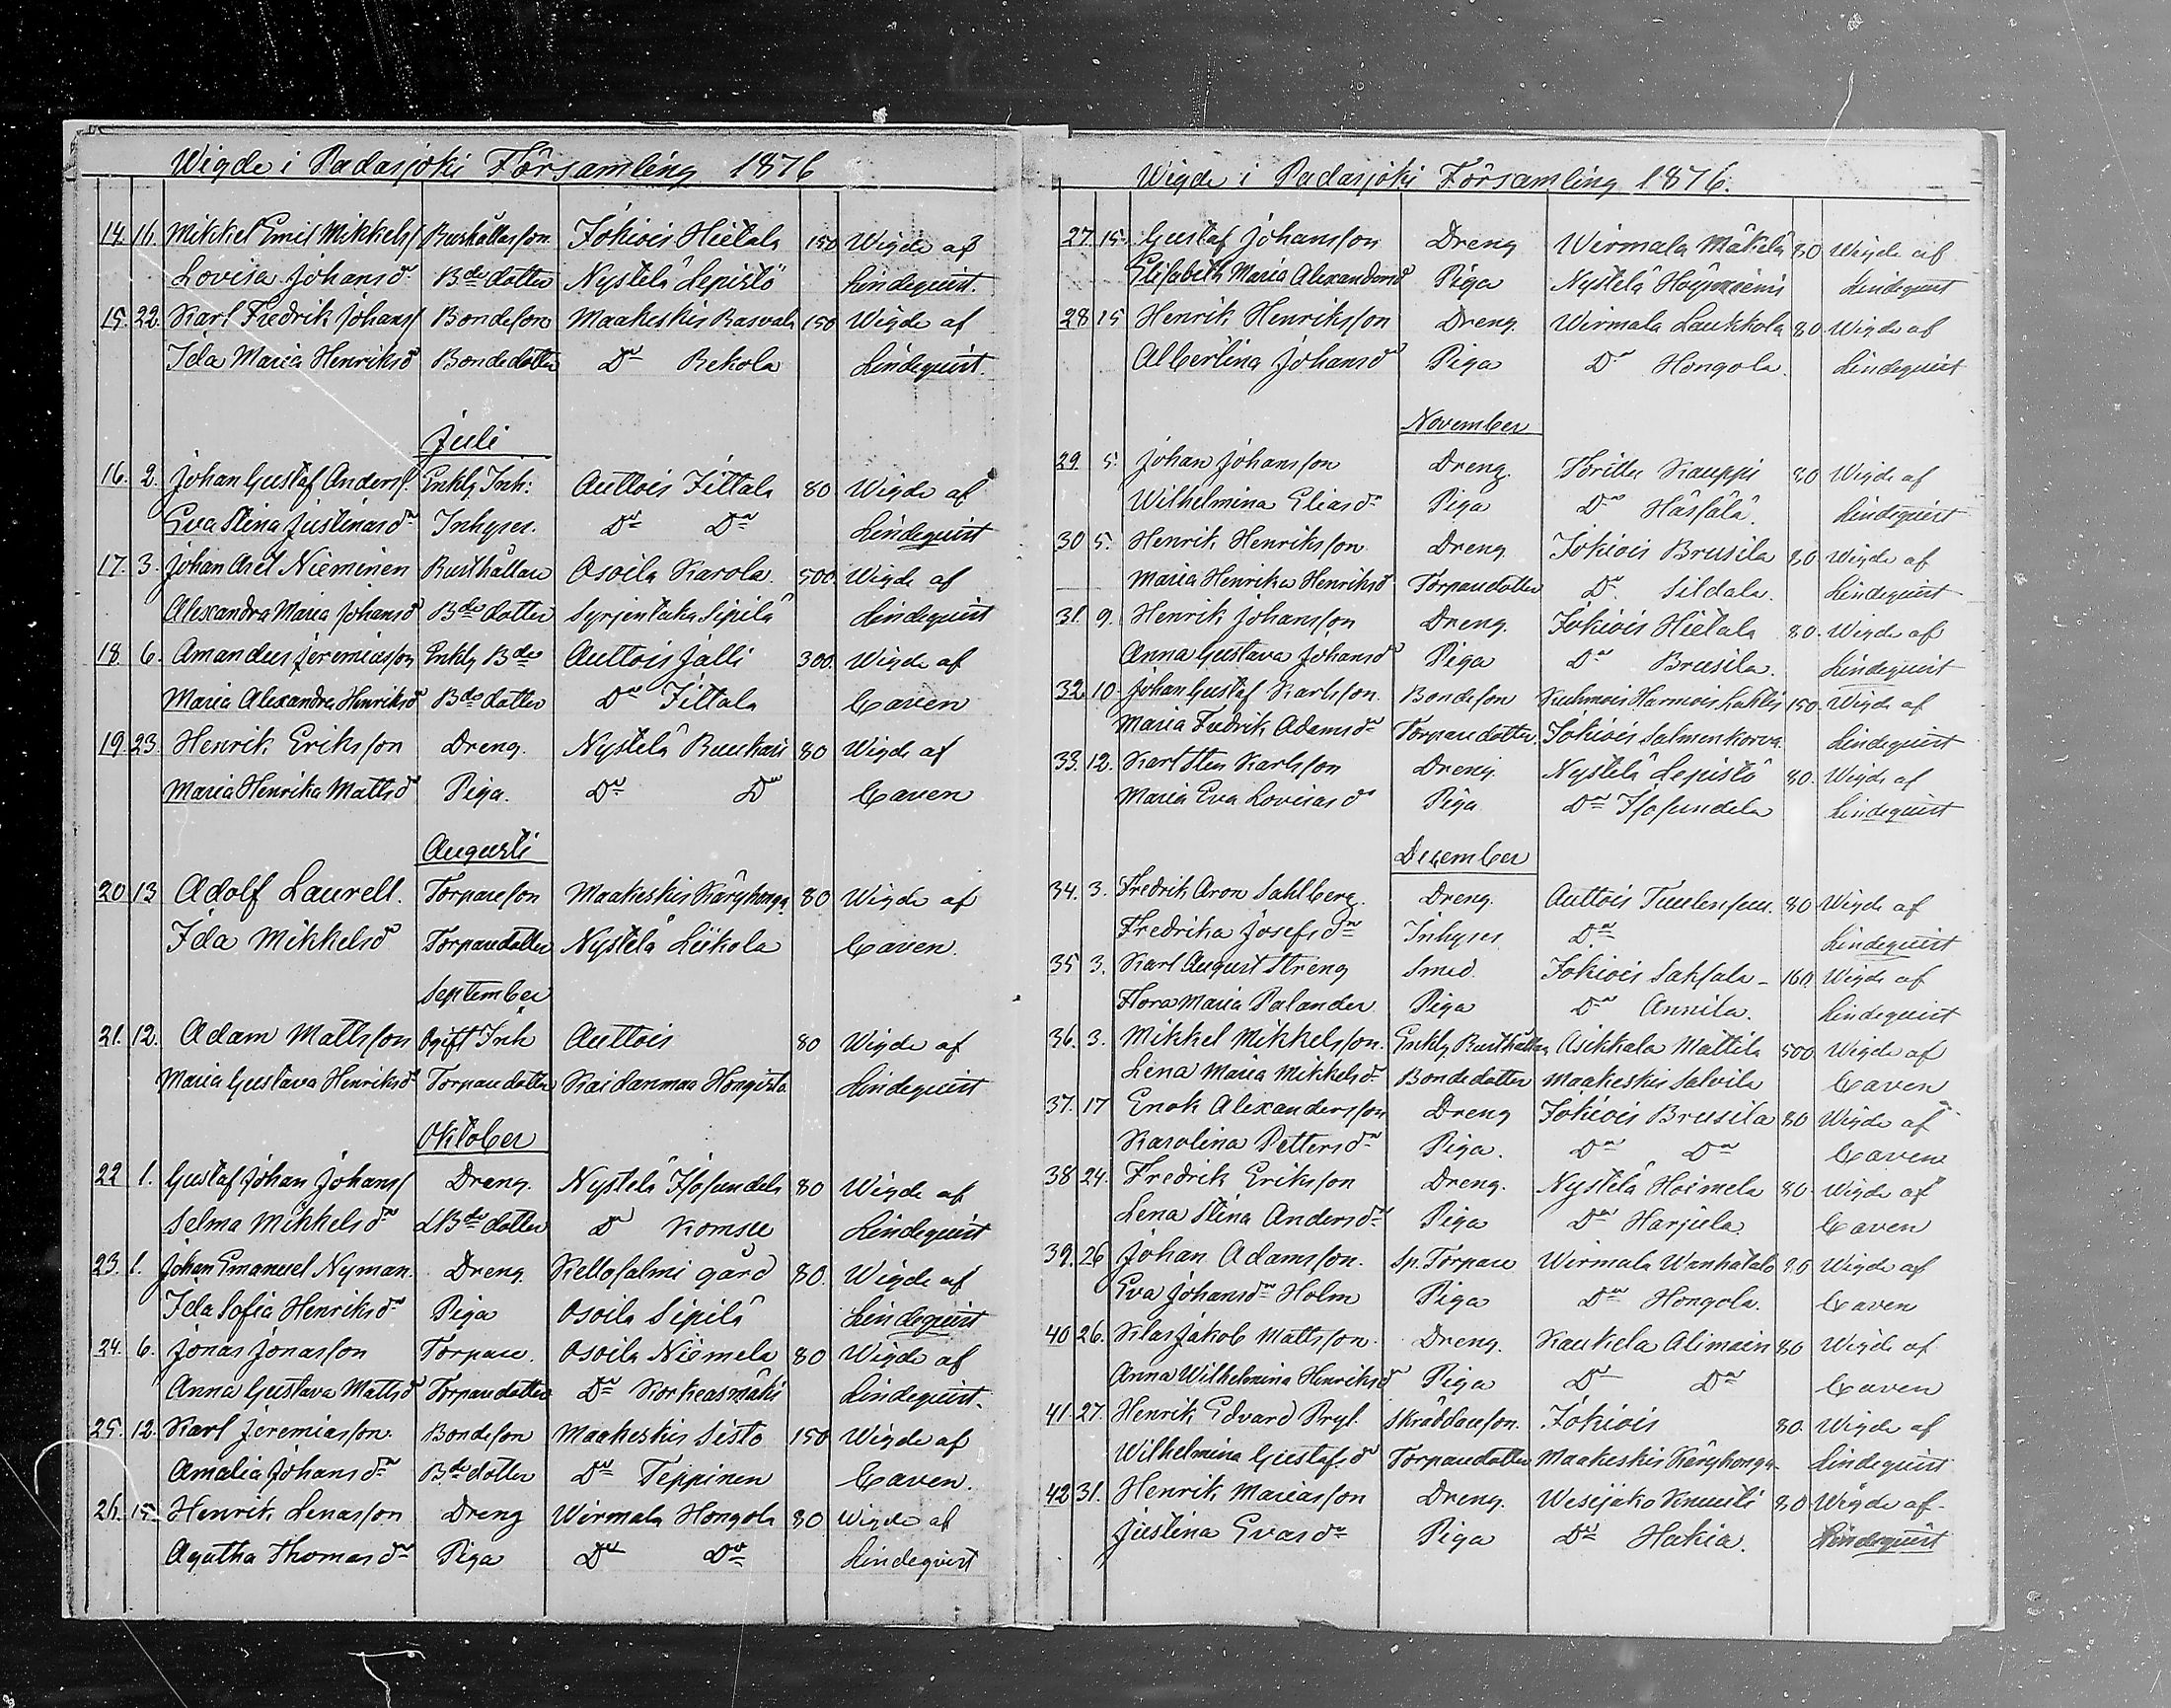 Wigde i Padasjoki Församling 1876
14. 16. Mikkel Emil Mikkels/ Rusthållarson Jokiois Hietala 150 Wigde af
Lovisa Johansdr Bdedotter Nystelä Lepistö Lindequist.
15. 22. Karl Fredrik Johans/ Bondeson Maakeskis Rasvala 150 Wigde af
Ida Maria Henriksdr Bondedotter Do Rekola Lindequist.
Juli
16. 2. Johan Gustaf Anders/. Enkly Inh: Auttois Iittala 80 Wigde af
Eva Stina Justinasdr Inhyses. Do Do Lindequist
17. 3. Johan Axel Nieminen Rusthållare Osoila Karola. 500. Wigde af
Alexandra Maria Johansdr Bdedotter Syrjentaka Sipilä Lindequist
18 6. Amandus Jeremiasson Enkly Bde Auttois Jalli 300. Wigde af
Maria Alexandra Henriksdr Bdedotter Do Iittala Caven
19 23. Henrik Eriksson Dreng. Nystelä Ruuhais 80 Wigde af
Maria Henrika Mattsdr Piga. Do Do Caven
Augusti
20 13 Adolf Laurell. Torpareson Maakeskis Käryhonga 80 Wigde af
Ida Mikkelsdr Torparedotter Nystelä Liikola Caven.
September
21. 12. Adam Mattsson Ogift Inh Auttois 80 Wigde af
Maria Gustava Henriksdr Torparedotter Kaidanmaa Hongisto Lindequist
Oktober
22 1. Gustaf Johan Johans/ Dreng. Nystelä Isosundela 80 Wigde af
Selma Mikkelsdr Bdedotter Do Komsu Lindequist
23. 1. Johan Emanuel Nyman. Dreng. Kellosalmi gård 80. Wigde af
Ida Sofia Henriksdr Piga Osoila Sipilä Lindequist
24. 6. Jonas Jonasson Torpare. Osoila Niemelä 80 Wigde af
Anna Gustava Mattsdr Torparedotter Do Korkeasmäki Lindequist.
25. 12. Karl Jeremiasson. Bondeson Maakeskis Sisto 150 Wigde af
Amalia Johansdr Bdedotter Do Teppinen Caven.
26. 15. Henrik Lenasson Dreng Wirmala Hongola 80 Wigde af
Agatha Thomasdr Piga Do Do Lindequist
Wigde i Padasjoki Församling 1876.
27. 15. Gustaf Johansson Dreng Wirmala Mäkelä 80 Wigde af
Elisabeth Maria Alexandersdr Piga Nystelä Lindequist
28 15 Henrik Henriksson Dreng. Wirmala Laukkola 80. Wigde af
Albertina Johansdr Piga Do Hongola. Lindequist
November
29. 5. Johan Johansson Dreng. Torittu Kauppi 80 Wigde af
Wilhelmina Eliasdr Piga Do Hässälä. Lindequist
30 5. Henrik Henriksson Dreng Jokiois Brusila 80 Wigde af
Maria Henrika Henriksdr Torparedotter Do. Sildala. Lindequist
31. 9. Henrik Johansson Dreng. Jokiois Hietala 80. Wigde af
Anna Gustava Johansdr Piga Do Brusila. Lindequist
32. 10. Johan Gustaf Karlsson. Bondeson Kuhmois Harmois 150 Wigde af
Maria Fredrik Adamsdr Torparedotter. Jokiois Salmenkorva. Lindequist
33. 12. Karl Sten Karlsson Dreng. Nystelä Lepistö 80. Wigde af
Maria Eva Lovisasdr Piga Do Isosundela Lindequist
December
34. 3. Fredrik Aron Sahlberg. Dreng. Auttois Tuulensuu. 80 Wigde af
Fredrika Josefsdr Inhyses Do Lindequist
35 3. Karl August Streng Smed. Jokiois Saksala 160 Wigde af
Flora Maria Palander Piga Do Annila. Lindequist
36. 3. Mikkel Mikkelsson. Enkly Rusthållare Asikkala Mattila 500 Wigde af
Lena Maria Mikkelsdr Bondedotter Maakeskis Salvila Caven
37. 17 Enok Alexandersson Dreng Jokiois Brusila 80 Wigde af
Karolina Pettersdr Piga. Do Do Caven
38 24. Fredrik Eriksson Dreng. Nystelä Hoimela 80. Wigde af
Lena Stina Andersdr Piga Do Harjula. Caven
39. 26 Johan Adamsson. Sp. Torpare Wirmala Wanhatalo 80 Wigde af
Eva Johansdr Holm Piga Do Hongola. Caven
40 26. Klas Jakob Mattsson. Dreng. Kaukela Alimain 80 Wigde af
Anna Wilhelmina Henriksdr Piga Do Do Caven
41. 27. Henrik Edvard Pryl. Skräddareson. Jokiois 80. Wigde af
Wilhelmina Gustafsdr Torparedotter Maakeskis Käryhonga Lindequist
42 31. Henrik Mariasson Dreng. Wesijako Knuuti 80 Wigde af
Justina Evasdr Piga Do Hakia. Lindequist